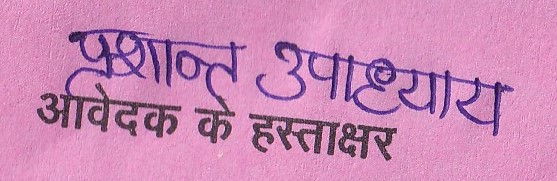 प्रशान्त उपाध्याय
आवेदक के हस्ताक्षर